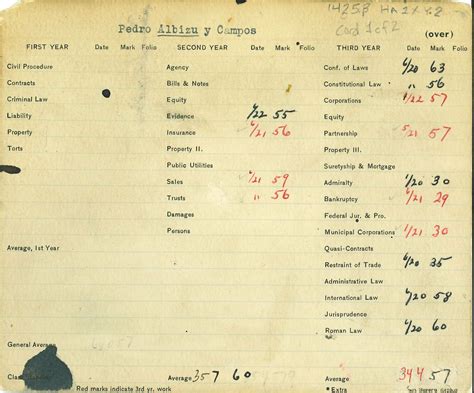 1425B HA 1 X Y.2
Card 1 of 2
Pedro Albizu y Campos (over)
FIRST YEAR Date Mark Folio SECOND YEAR Date Mark Folio THIRD YEAR Date Mark Folio
Civil Procedure Agency Conf. of Laws 6/20 63
Contracts Bills & Notes Constitutional Law " 56
Criminal Law Equity Corporations 6/22 57
Liability Evidence 6/22 55 Equity
Property Insurance 6/21 56 Partnership 5/21 57
Torts Property II. Property III.
Public Utilities Suretyship & Mortgage
Sales 6/21 59 Admiralty 6/20 30
Trusts " 56 Bankruptcy 6/21 29
Damages Federal Jur. & Pro.
Persons Municipal Corporations 6/21 30
Average, 1st Year Quasi-Contracts
Restraint of Trade 6/20 35
Administrative Law
International Law 6/20 58
Jurisprudence
Roman Law 6/20 60
General Average
Average 357 60 Average 344 57
Red marks indicate 3rd yr. work * Extra